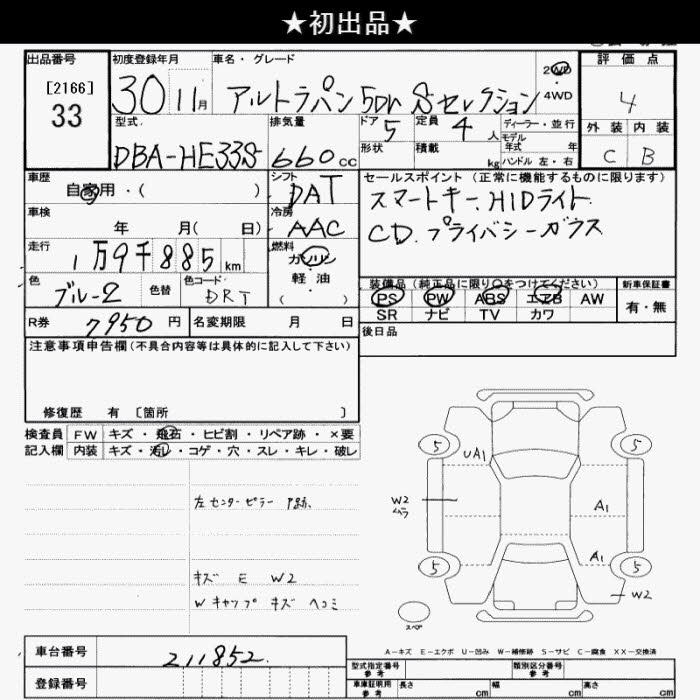 ★初出品★
出品番号
[2166]
33
初度登録年月
30 11月
車名・グレード
アルトラパン 5Dr Sセレクション
2WD
4WD
評価点
4
外装 内装
C B
型式
DBA-HE33S
排気量
660cc
ドア
5
形状
定員
4人
積載
kg
ディーラー・並行
モデル年式 年
ハンドル 左・右
車歴
自家用・( )
シフト
DAT
車検
年 月( 日)
冷房
AAC
走行
1万9千885km
燃料
ガソリン
・
軽油
( )
色
ブルー2
色替
色コード
DRT
R券
7950円
名変期限 月 日
セールスポイント(正常に機能するものに限ります)
スマートキー、HIDライト、
CD、プライバシーガラス
装備品(純正品に限り○をつけてください)
PS PW ABS エアB AW
SR ナビ TV カワ
新車保証書
有・無
後日品
注意事項申告欄(不具合内容等は具体的に記入して下さい)
修復歴 有 〔箇所 〕
検査員記入欄
FW キズ・飛石・ヒビ割・リペア跡・×要
内装 キズ・汚れ・コゲ・穴・スレ・キレ・破レ
左センターピラー P跡、
キズ E W2
Wキャップ キズ ヘコミ
5
5
UA1
W2
ムラ
A1
A1
5
5
W2
スペア
A-キズ E-エクボ U-凹み W-補修跡 S-サビ C-腐食 XX-交換済
車台番号
211852
登録番号
型式指定番号
参考
類別区分番号
参考
車庫証明用
参考
長さ cm 幅 cm 高さ cm